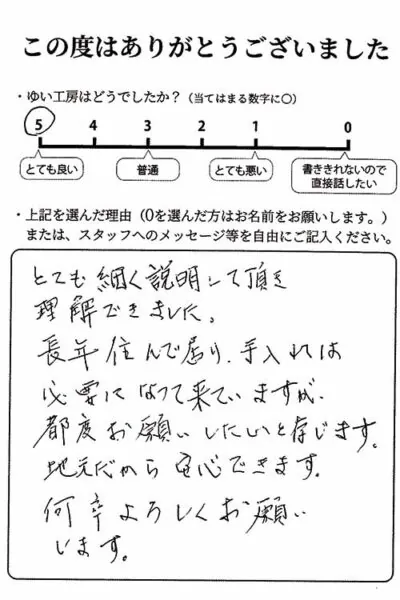 この度はありがとうございました
・ゆい工房はどうでしたか？（当てはまる数字に○）
5 4 3 2 1 0
とても良い 普通 とても悪い 書ききれないので直接話したい
・上記を選んだ理由（0を選んだ方はお名前をお願いします。）
または、スタッフへのメッセージ等を自由にご記入ください。
とても細く説明して頂き
理解できました。
長年住んで居り、手入れは
必要になって来ていますが、
都度お願いしたいと存じます。
地元だから安心できます。
何卒よろしくお願い
します。